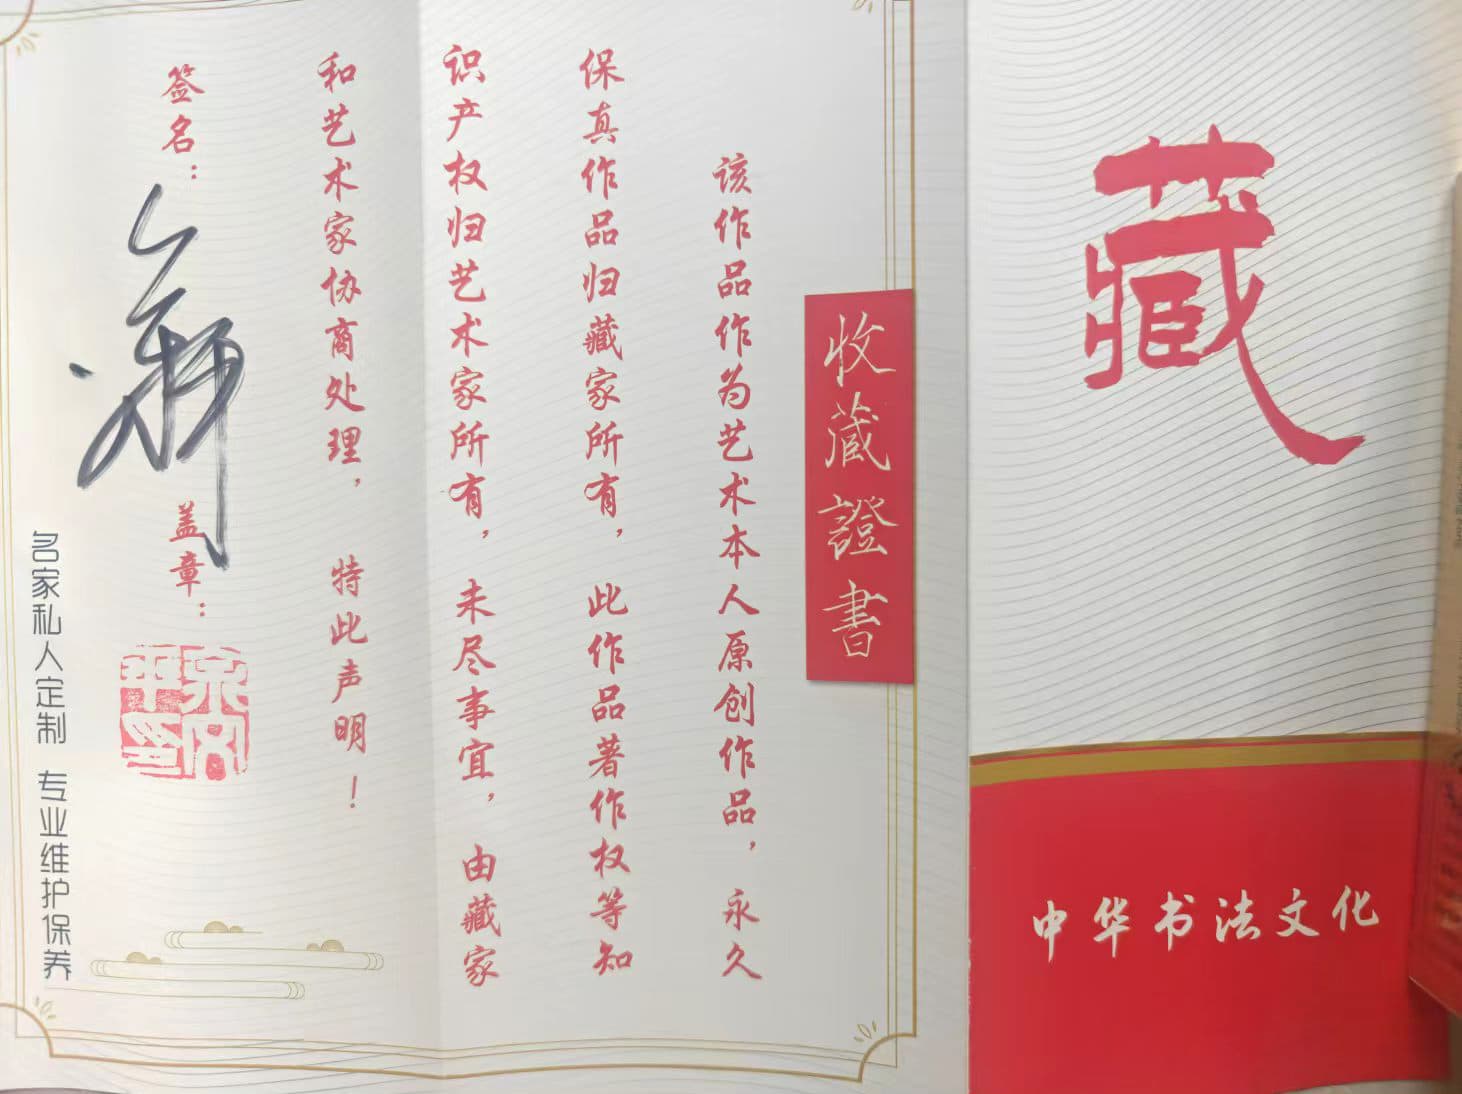 藏
中华书法文化
收藏證書
该作品作为艺术本人原创作品，永久
保真作品归藏家所有，此作品著作权等知
识产权归艺术家所有，未尽事宜，由藏家
和艺术家协商处理，特此声明！
签名：
盖章：
名家私人定制 专业维护保养